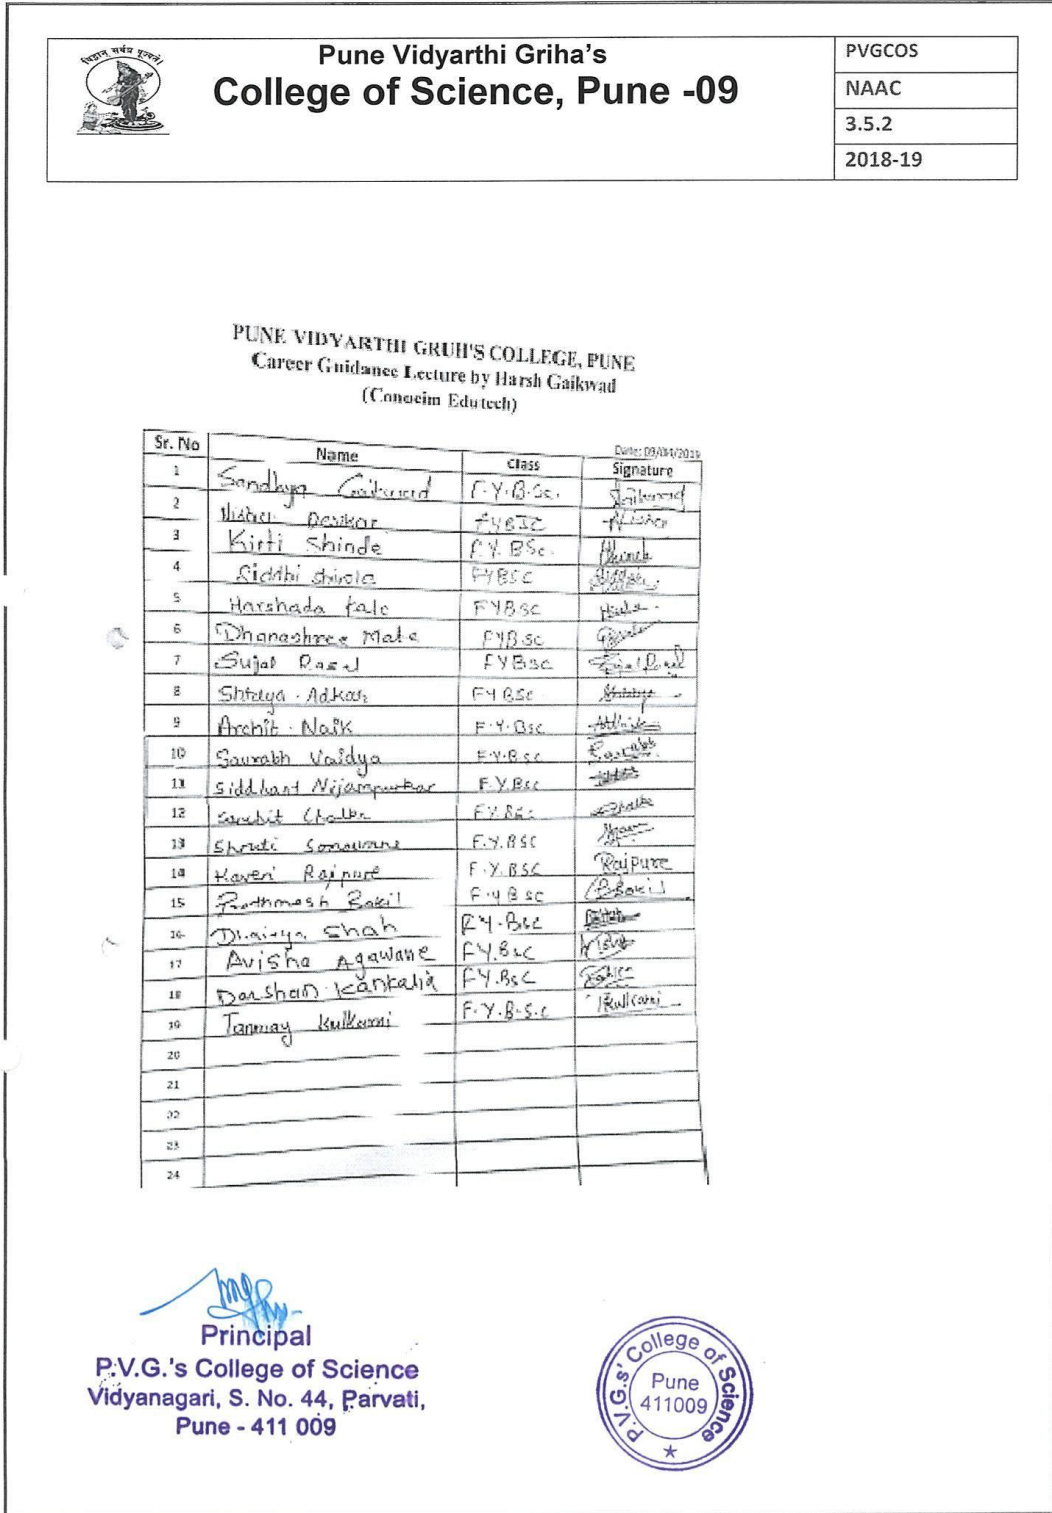 विद्वान् सर्वत्र पूज्यते।
Pune Vidyarthi Griha's
College of Science, Pune -09
PVGCOS
NAAC
3.5.2
2018-19
PUNE VIDYARTHI GRUH'S COLLEGE, PUNE
Career Guidance Lecture by Harsh Gaikwad
(Conocim Edutech)
Date: 09/04/2019
Sr. No Name Class Signature
1 Sandhya Gaikwad F.Y.B.Sc. Gaikwad
2 FYBSC
3 Kirti Shinde F.Y. BSc.
4 Siddhi FYBSC
5 Harshada Kale FYBSC
6 Dhanashree Mate FYBSC
7 Sujal FYBSC
8 Shreya . Adkar FYBSC
9 Archit . Naik F.Y.BSC
10 Saurabh Vaidya F.Y.B.Sc
11 Siddhant Nijampurkar F.Y.BSC
12 F.Y.BSC
13 Shruti Sonawane F.Y.BSC
14 Kaveri Rajpure F.Y.BSC Rajpure
15 Prathmesh Bokil F.Y.BSC Bokil
16 Dhairya Shah F.Y.BSC
17 Avisha Agawane F.Y.BSC
18 Darshan Kankalia F.Y.BSC
19 Tanmay Kulkarni F.Y.B.S.C Kulkarni
20
21
22
23
24
Principal
P.V.G.'s College of Science
Vidyanagari, S. No. 44, Parvati,
Pune - 411 009
P.V.G.s' College of Science
Pune
411009